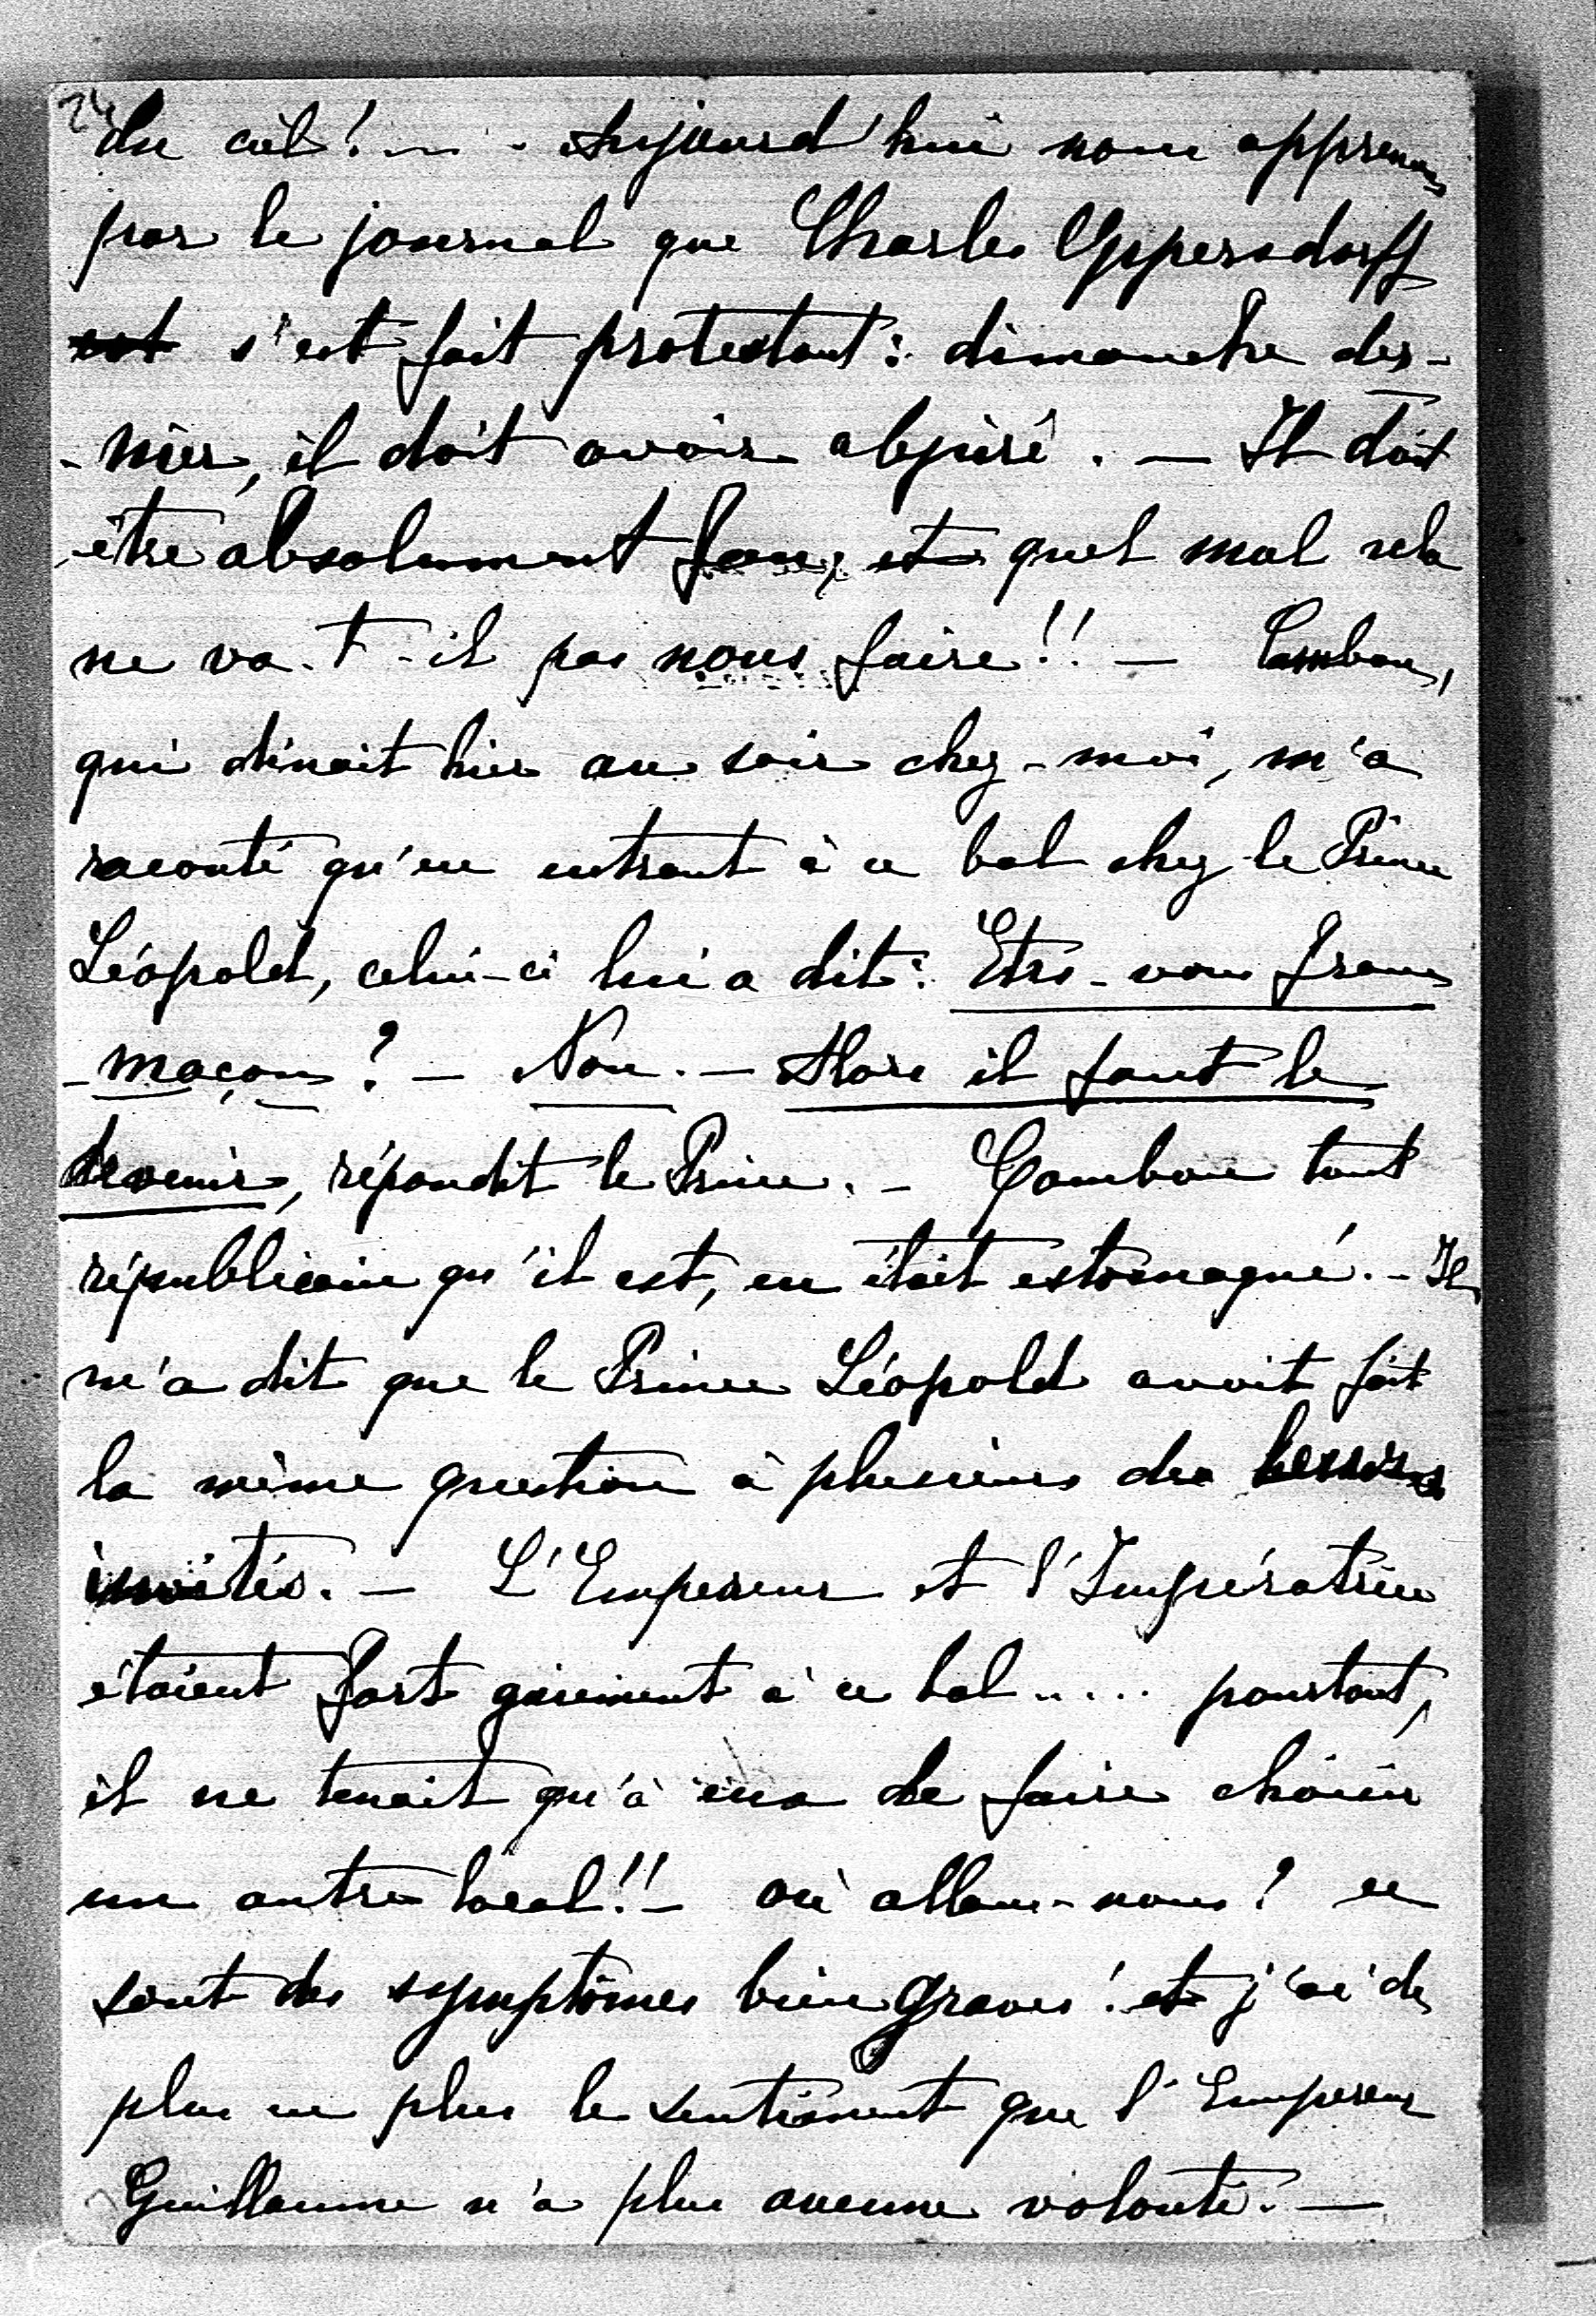 24
du ciel! — . Aujourd'hui nous apprenons
par le journal que Charles Oppersdorff
est s'est fait protestant: dimanche der-
-nier, il doit avoir abjuré. — Il doit
être absolument fou, et quel mal cela
ne va-t-il pas nous faire!! — Cambon,
qui dînait hier au soir chez-moi, m'a
raconté qu'en entrant à ce bal chez le Prince
Léopold, celui-ci lui a dit: Etes-vous franc
-maçon? — Non. — Alors il faut le
devenir, répondit le Prince. — Cambon tout
républicain qu'il est, en était estomaqué. — Il
m'a dit que le Prince Léopold avait fait
la même question à plusieurs des
invités. — L'Empereur et l'Impératrice
étaient fort gaiement à ce bal..... pourtant,
il ne tenait qu'à eux de faire choisir
un autre local!! — où allons-nous? ce
sont des symptômes bien graves! et j'ai de
plus en plus le sentiment que l'Empereur
Guillaume n'a plus aucune volonté. —